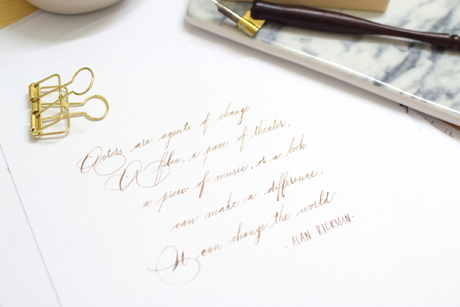 Actors are agents of change
A film, a piece of theater,
a piece of music, or a book
can make a difference.
It can change the world
- ALAN RICKMAN -